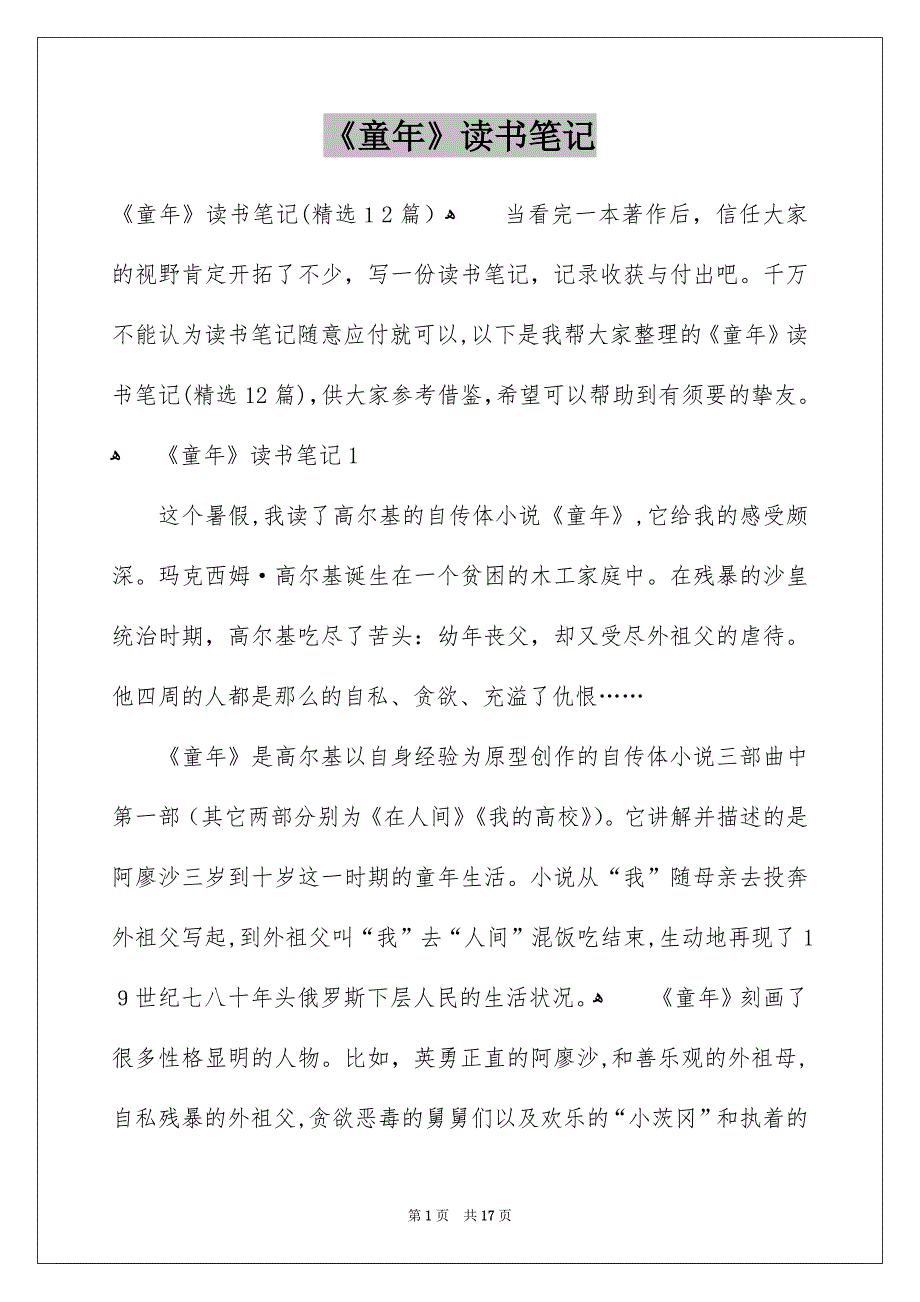 《童年》读书笔记
《童年》读书笔记(精选12篇）ﻫ　　当看完一本著作后，信任大家
的视野肯定开拓了不少，写一份读书笔记，记录收获与付出吧。千万
不能认为读书笔记随意应付就可以,以下是我帮大家整理的《童年》读
书笔记(精选12篇),供大家参考借鉴,希望可以帮助到有须要的挚友。
ﻫ　　《童年》读书笔记1
这个暑假,我读了高尔基的自传体小说《童年》,它给我的感受颇
深。玛克西姆·高尔基诞生在一个贫困的木工家庭中。在残暴的沙皇
统治时期，高尔基吃尽了苦头：幼年丧父，却又受尽外祖父的虐待。
他四周的人都是那么的自私、贪欲、充溢了仇恨……
《童年》是高尔基以自身经验为原型创作的自传体小说三部曲中
第一部（其它两部分别为《在人间》《我的高校》）。它讲解并描述的是
阿廖沙三岁到十岁这一时期的童年生活。小说从“我”随母亲去投奔
外祖父写起,到外祖父叫“我”去“人间”混饭吃结束,生动地再现了1
9世纪七八十年头俄罗斯下层人民的生活状况。ﻫ　　《童年》刻画了
很多性格显明的人物。比如，英勇正直的阿廖沙,和善乐观的外祖母,
自私残暴的外祖父,贪欲恶毒的舅舅们以及欢乐的“小茨冈”和执着的
第1页 共17页